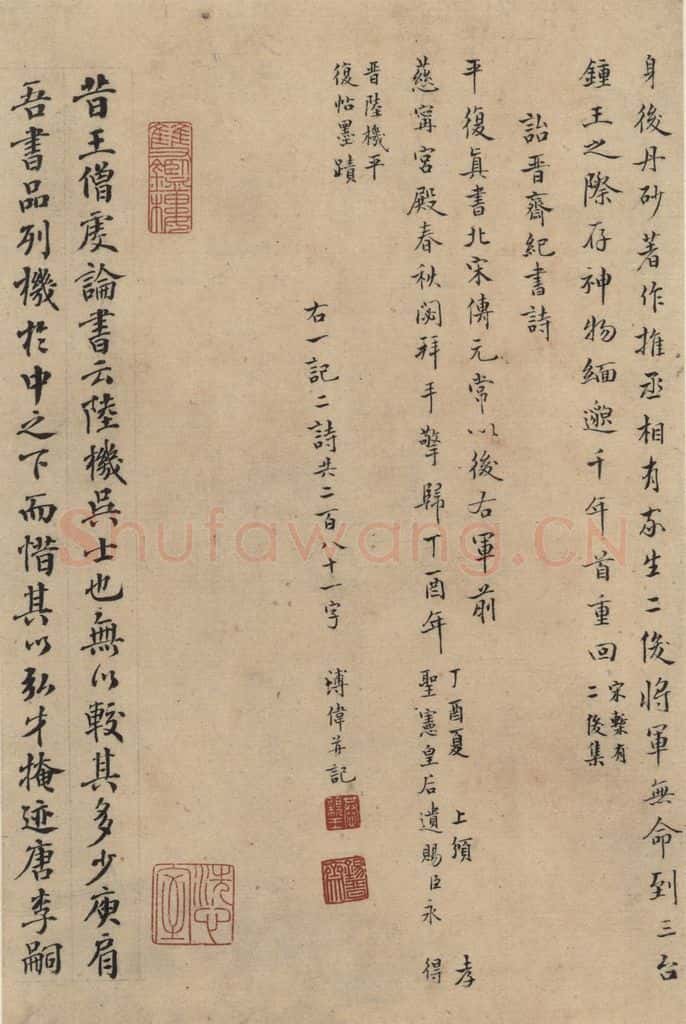 身後丹砂著作推丞相有家生二俊將軍無命到三台
鍾王之際存神物緬邈千年首重回
宋槧有
二俊集
詒晉齋紀書詩
平復眞書北宋傳元常以後右軍前
慈寧宮殿春秋閟拜手擎歸丁酉年
丁酉夏 上頒 孝
聖憲皇后遺賜臣永 得
晉陸機平
復帖墨蹟
右一記二詩共二百八十一字 溥偉并記
錫晉齋
雙鑑樓
洗心室
昔王僧虔論書云陸機吳士也無以較其多少庾肩
吾書品列機於中之下而惜其以弘才掩迹唐李嗣
Shufawang.CN